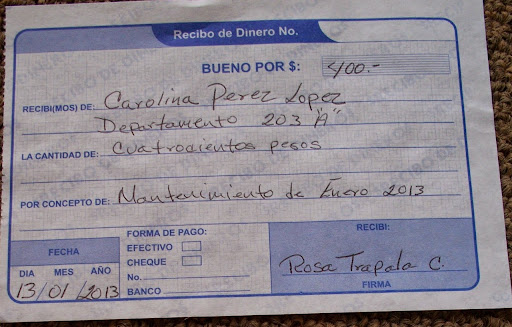 Recibo de Dinero No.
BUENO POR $: 400.-
RECIBÍ(MOS) DE: Carolina Perez Lopez
Departamento 203 "A"
LA CANTIDAD DE: Cuatrocientos pesos
POR CONCEPTO DE: Mantenimiento de Enero 2013
FORMA DE PAGO:
RECIBI:
FECHA
EFECTIVO
DIA MES AÑO
CHEQUE
No.
Rosa Trapala C.
13/01/2013
BANCO
FIRMA